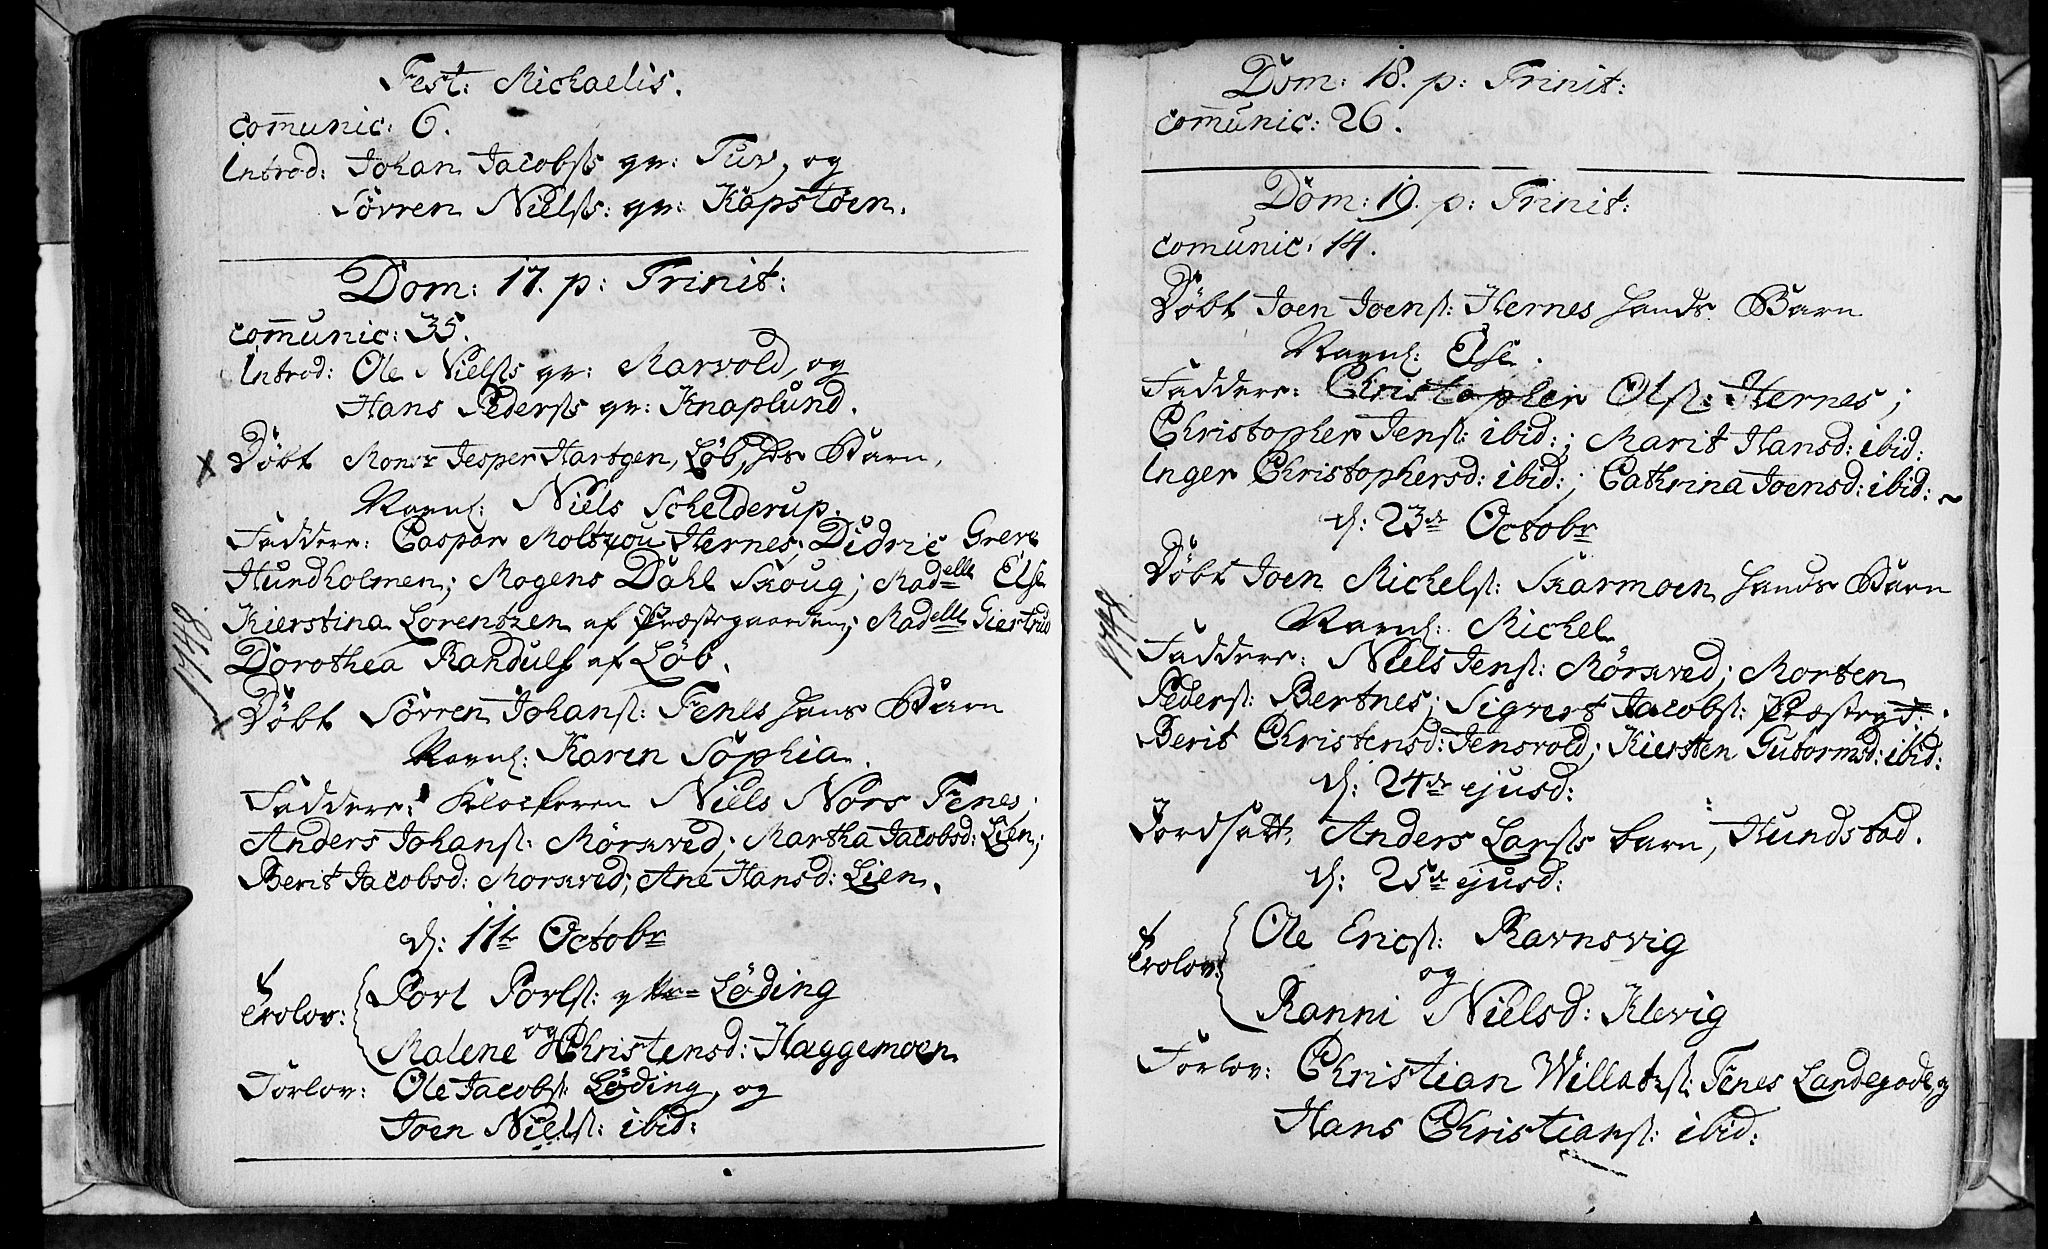 Fest: Michaelis.
com̄unic: 6.
Introd: Johan Jacobss qv: Tuv, og
Sørren Nielss: qv: Kopstøen.
Dom: 17. p: Trinit:
com̄unic: 35.
Introd: Ole Nielss qv: Marvold, og
Hans Pederss qv: Knaplund.
Døbt Monsr Jesper Hartgen, Løb, hs Barn,
Navnl: Niels Schelderup.
Faddere: Caspar Moltzou Hernes; Didric Greve
Hundholmen; Mogens Dahl Skoug; Madelle Else
Kierstina Lorentzen af Præstegaarden; Madelle Giertrud
Dorothea Randulf af Løb.
1748.
Døbt Sørren Johans: Fenes hans Barn
Navnl: Karen Sophia.
Faddere: Klockeren Niels Nors Fenes;
Anders Johans: Mørkved; Martha Jacobsd: Lien;
Berit Jacobsd: Morkved; Ane Hansd: Lien.
d: 11te Octobr
Trolov: Porl Porls: Løding
og
Malene Christensd: Hæggemoen
Forlov: Ole Jacobs: Løding, og
Joen Niels: ibid:
Dom: 18. p: Trinit:
com̄unic: 26.
Dom: 19. p: Trinit:
comunic: 14.
Døbt Joen Joens: Hernes hands Barn
Navnl: Else.
Faddere: Christopher Ols: Hernes;
Christopher Jens: ibid:; Marit Hansd: ibid:
Inger Christophersd: ibid:; Cathrina Joensd: ibid:
d: 23de Octobr
Døbt Joen Michels: Skarmoen hands Barn
Navnl: Michel
1748.
Faddere: Niels Jens: Mørkved; Morten
Peders: Bertnes; Sigvert Jacobs: Præstegd:
Berit Christensd: Jensvold; Kiersten Gutormsd: ibid:
d: 24de ejusd:
Jordsatt, Anders Larss barn, Hundstad.
d: 25de ejusd:
Trolov: Ole Erics: Ravnsvig
og
Ranni Nielsd: Klevig
Forlov: Christian Willats: Fenes Landegode, og
Hans Christians: ibid: